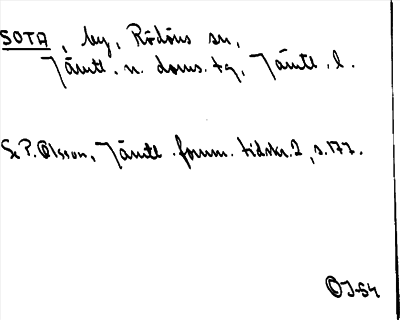 SOTA, by, Rödöns sn,
Jämtl. n. doms. tg, Jämtl. l.
Se P. Olsson, Jämtl. fornm. tidskr. 2, s. 177.
ⒸJ-54